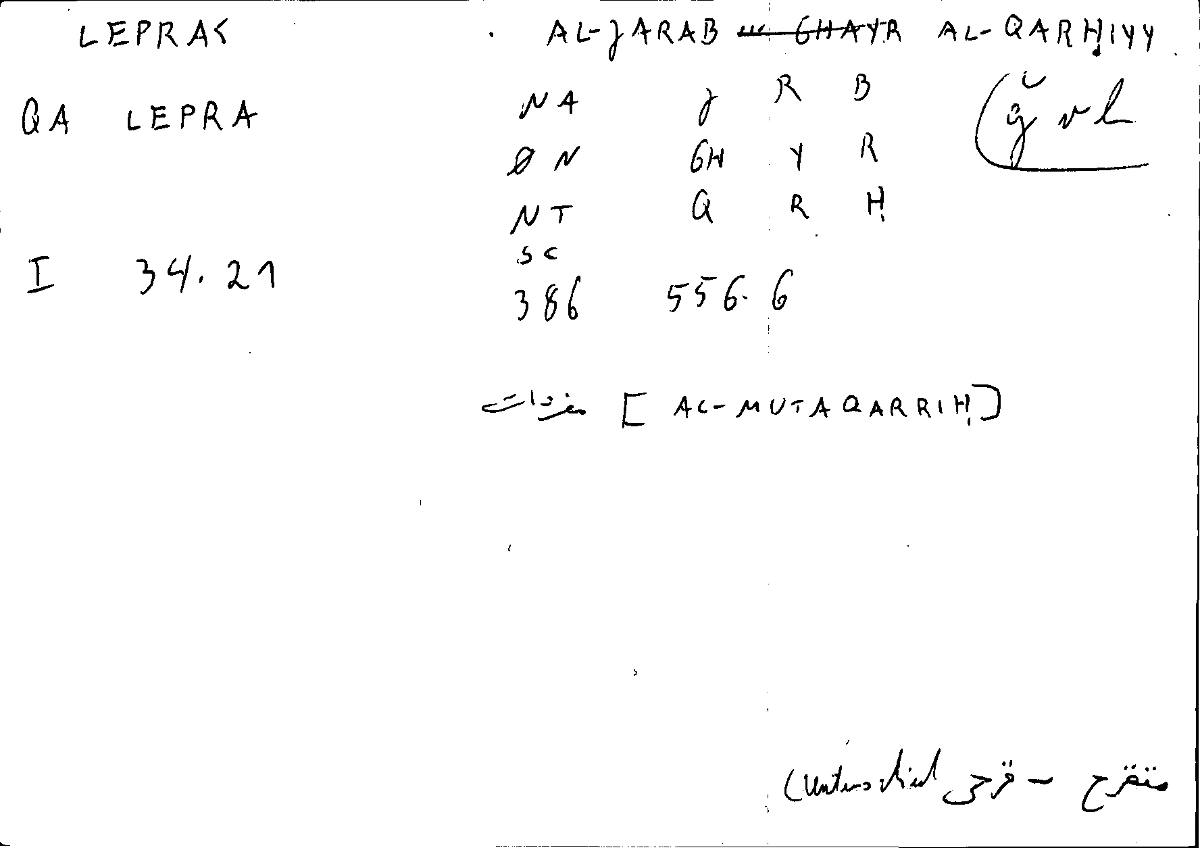 LEPRAS AL-JARAB GHAYR AL-QARḤIYY
QA LEPRA NA J R B
ØN GH Y R
NT Q R Ḥ
SC
I 34.21 386 556.6
مفردات [AL-MUTAQARRIḤ]
(Unterschied قرحى – متقرح